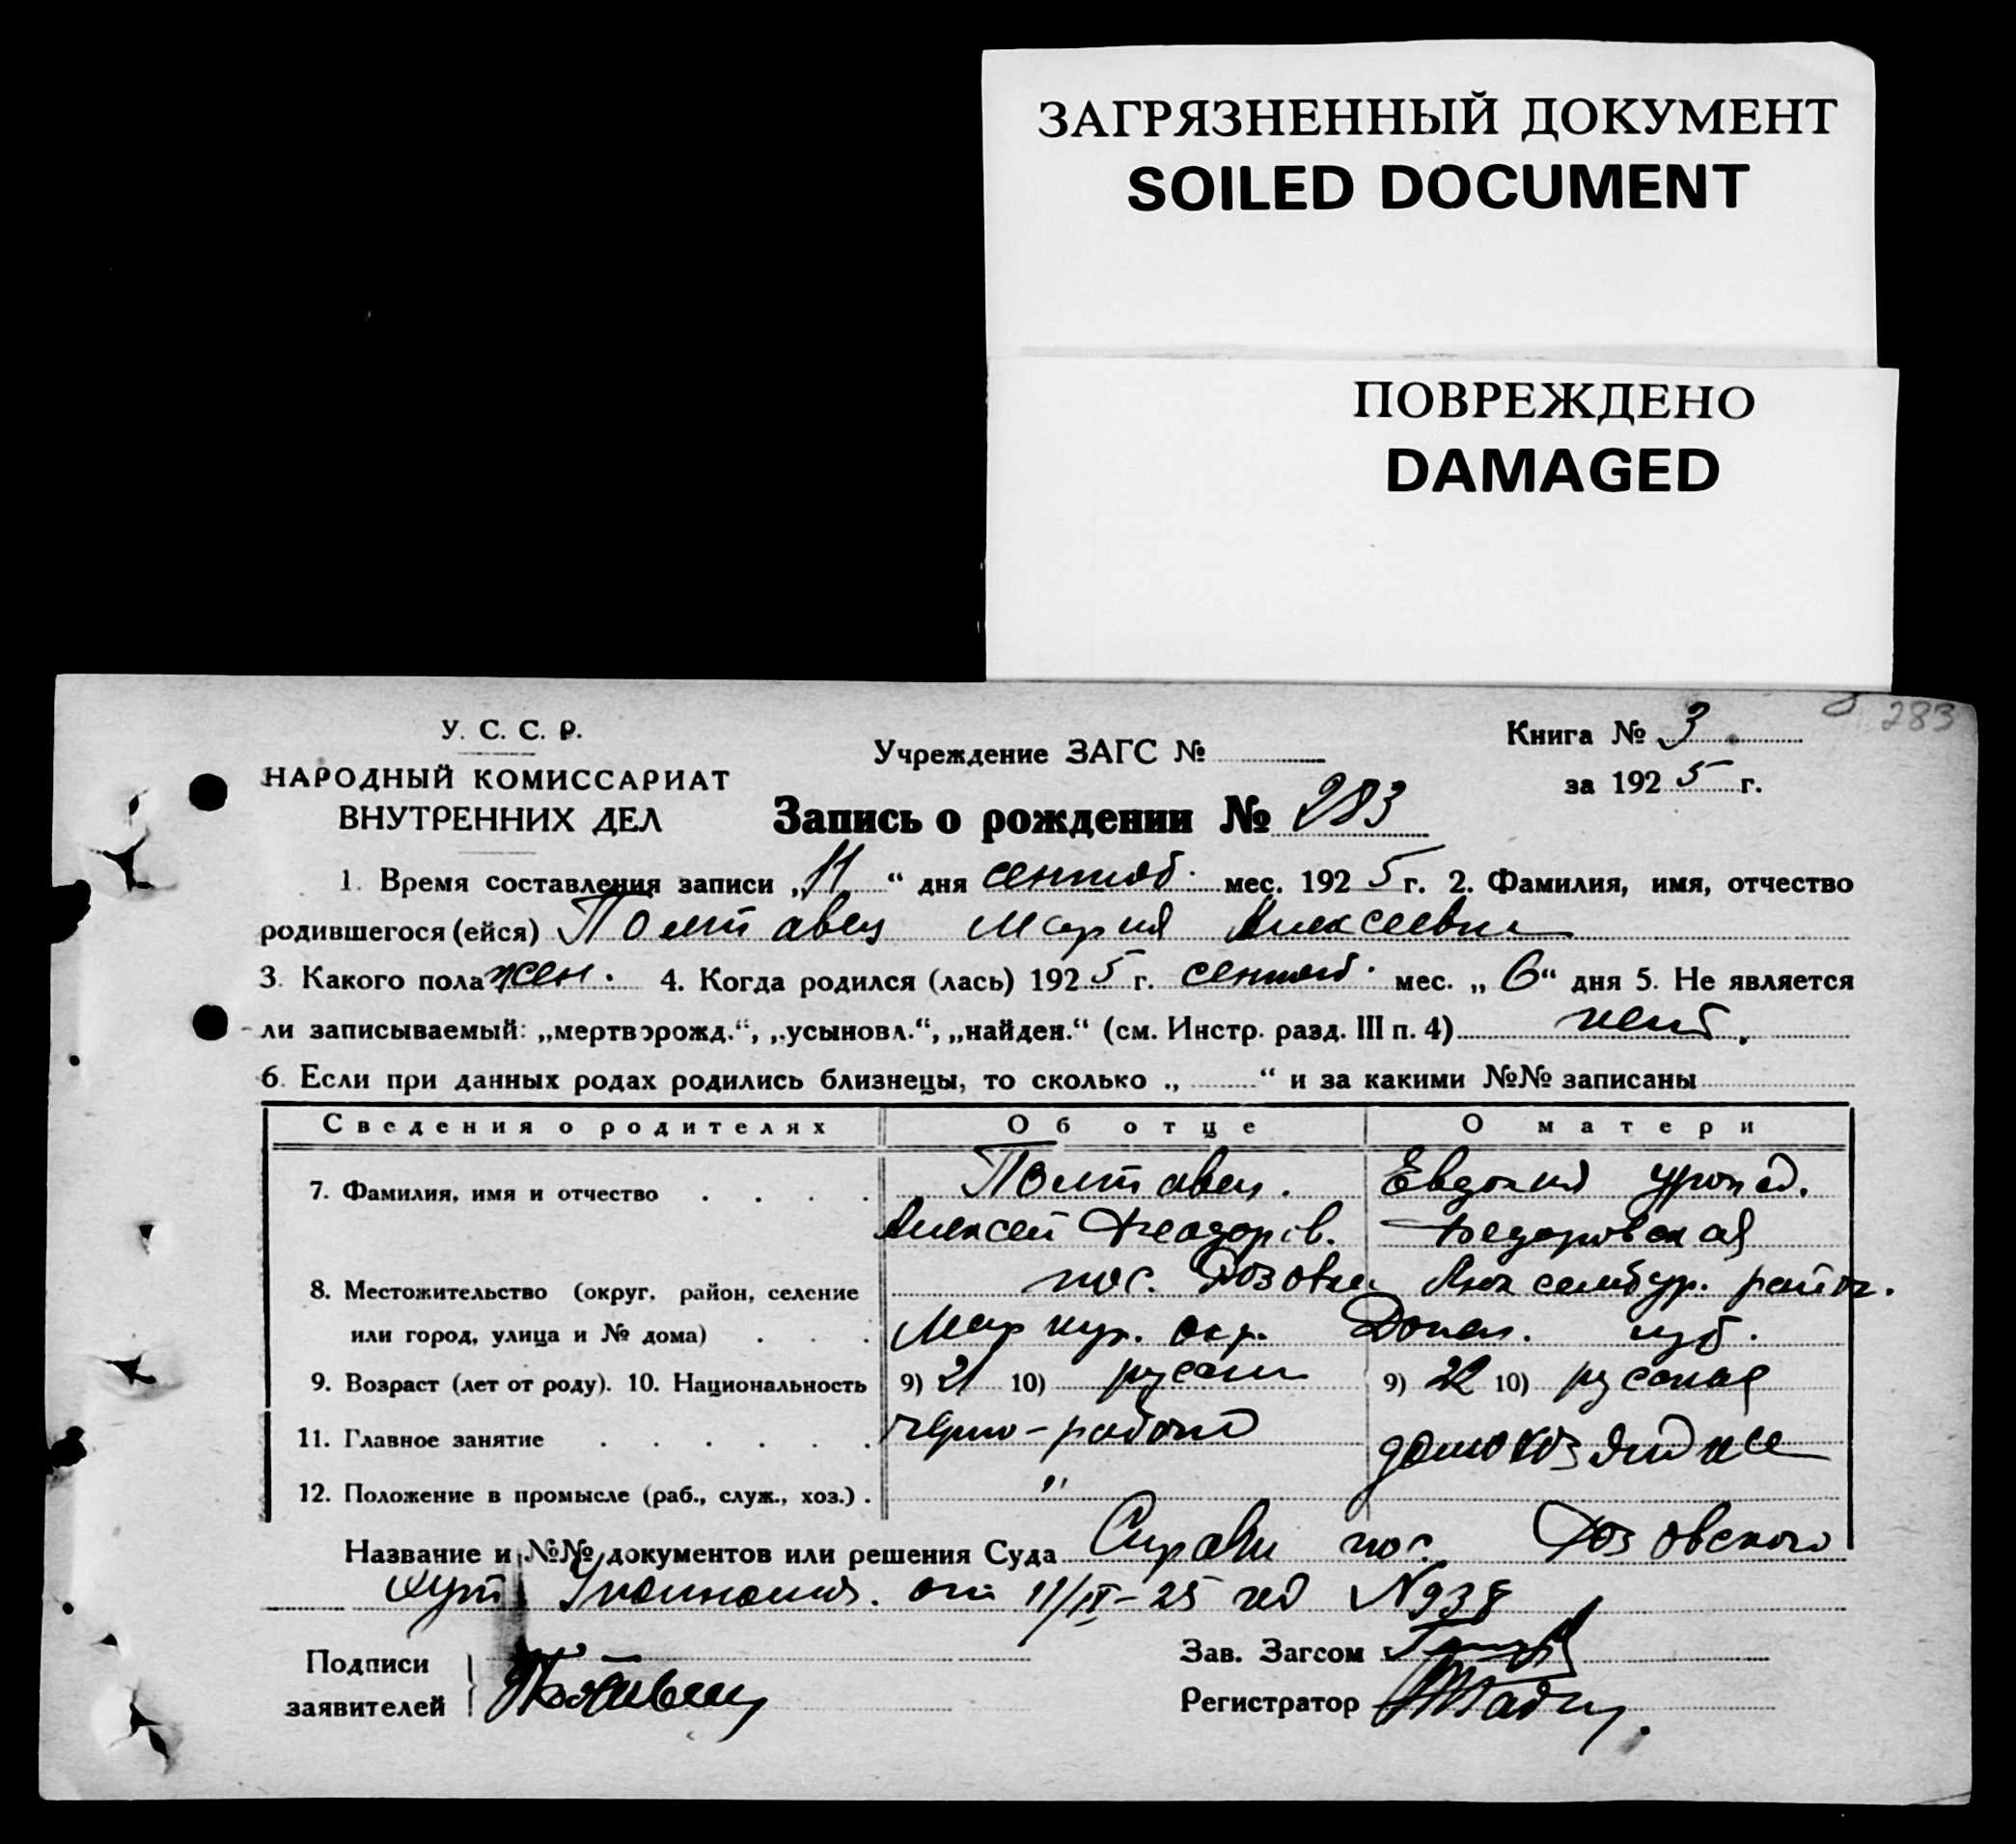 ЗАГРЯЗНЕННЫЙ ДОКУМЕНТ
SOILED DOCUMENT
ПОВРЕЖДЕНО
DAMAGED
283
У. С. С. Р.
НАРОДНЫЙ КОМИССАРИАТ
ВНУТРЕННИХ ДЕЛ
Учреждение ЗАГС №
Книга № 3
за 1925 г.
Запись о рождении № 283
1. Время составления записи „11“ дня сентяб. мес. 1925 г. 2. Фамилия, имя, отчество
родившегося (ейся) Полтавец Мария Алексеевна
3. Какого пола жен. 4. Когда родился (лась) 1925 г. сентяб. мес. „6“ дня 5. Не является
ли записываемый: „мертворожд.“, „усыновл.“, „найден.“ (см. Инстр. разд. III п. 4) нет.
6. Если при данных родах родились близнецы, то сколько „ “ и за какими №№ записаны
Сведения о родителях Об отце О матери
7. Фамилия, имя и отчество Полтавец. Евдокия
Алексей Феодоров. Федоровская
8. Местожительство (округ, район, селение пос. Розовка Люксембур. район.
или город, улица и № дома) Мариуп. окр. Донец. губ.
9. Возраст (лет от роду). 10. Национальность 9) 21 10) русский 9) 22 10) русская
11. Главное занятие черно-рабочий домохозяйка
12. Положение в промысле (раб., служ., хоз.) "
Название и №№ документов или решения Суда Справка пос. Розовского
от 11/IX-25 №938
Подписи
заявителей Полтавец
Зав. Загсом
Регистратор